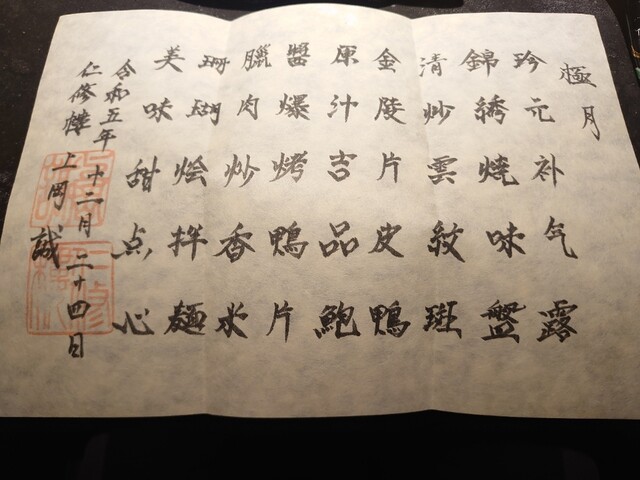 極月
珍元补气露
錦綉燒味盤
清炒雲紋斑
金陵片皮鴨
原汁吉品鮑
醬爆烤鴨片
臘肉炒香米
珊瑚烩拌麺
美味甜点心
令和五年十二月二十四日
仁修樓 上岡誠